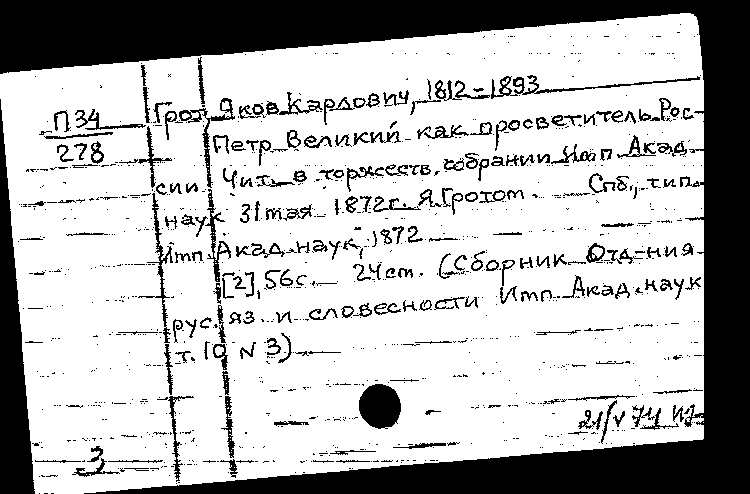 П34
278
Грот, Яков Карлович, 1812-1893
Петр Великий как просветитель Рос-
сии. Чит. в торжеств. собрании Имп. Акад.
наук 31 мая 1872г. Я. Гротом. Спб., тип.
Имп. Акад. наук, 1872
[2], 56с. 24 cm. (Сборник Отд-ния
рус. яз. и словесности Имп. Акад. наук
т. 10 N 3)
21/V 74
3